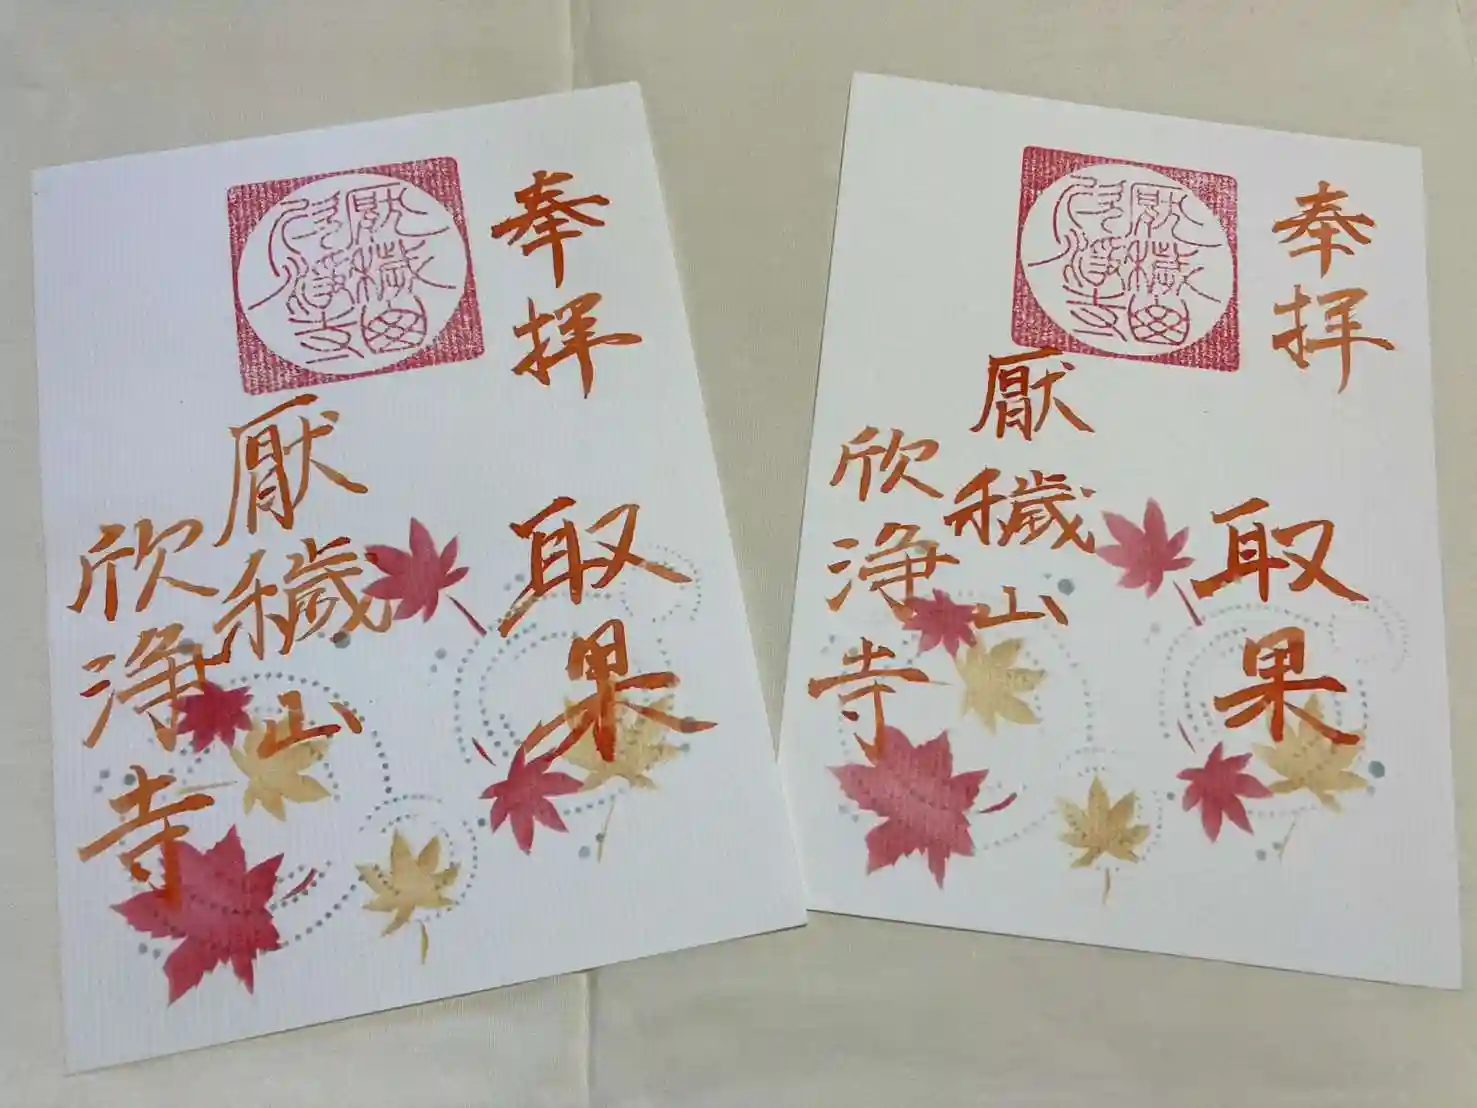 奉拝
取果
厭穢山
欣浄寺
奉拝
取果
厭穢山
欣浄寺